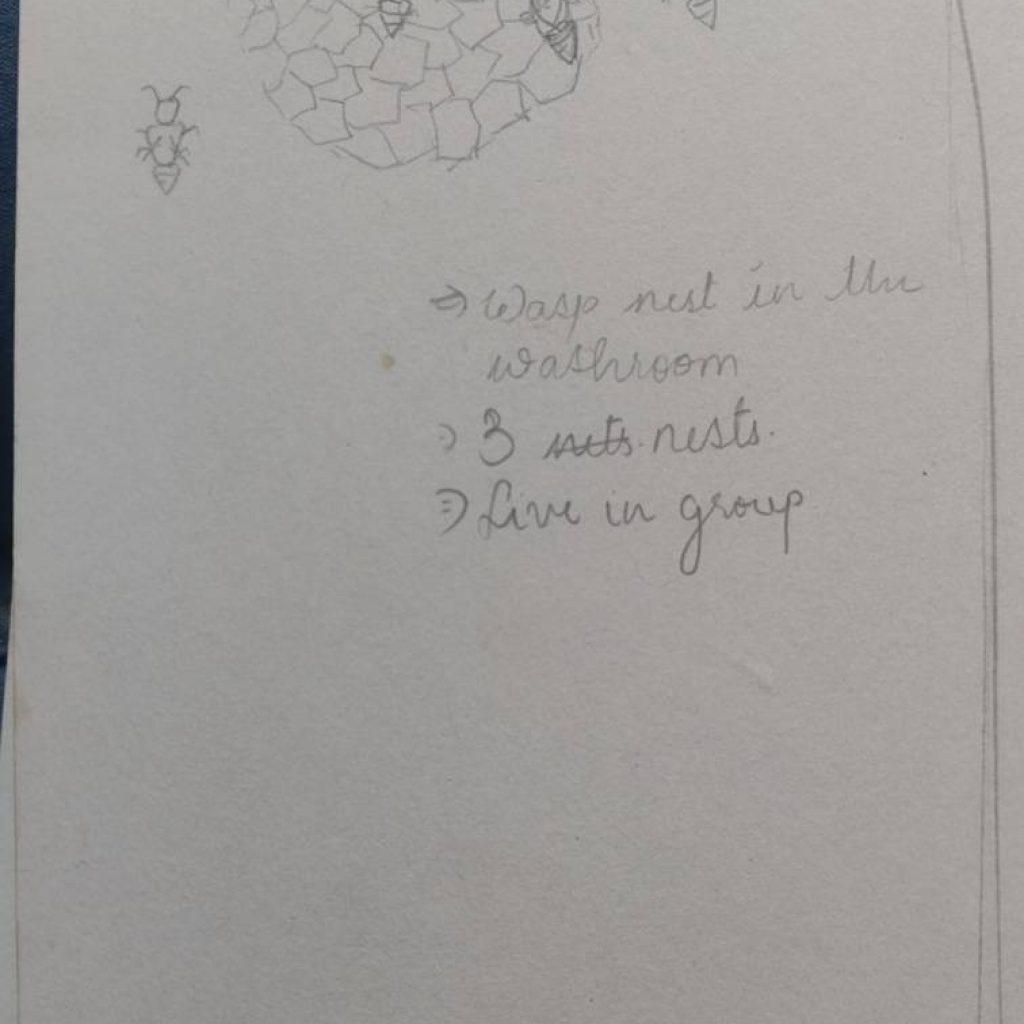 ⇒ Wasp nest in the
washroom
⇒ 3 nests.
⇒ Live in group